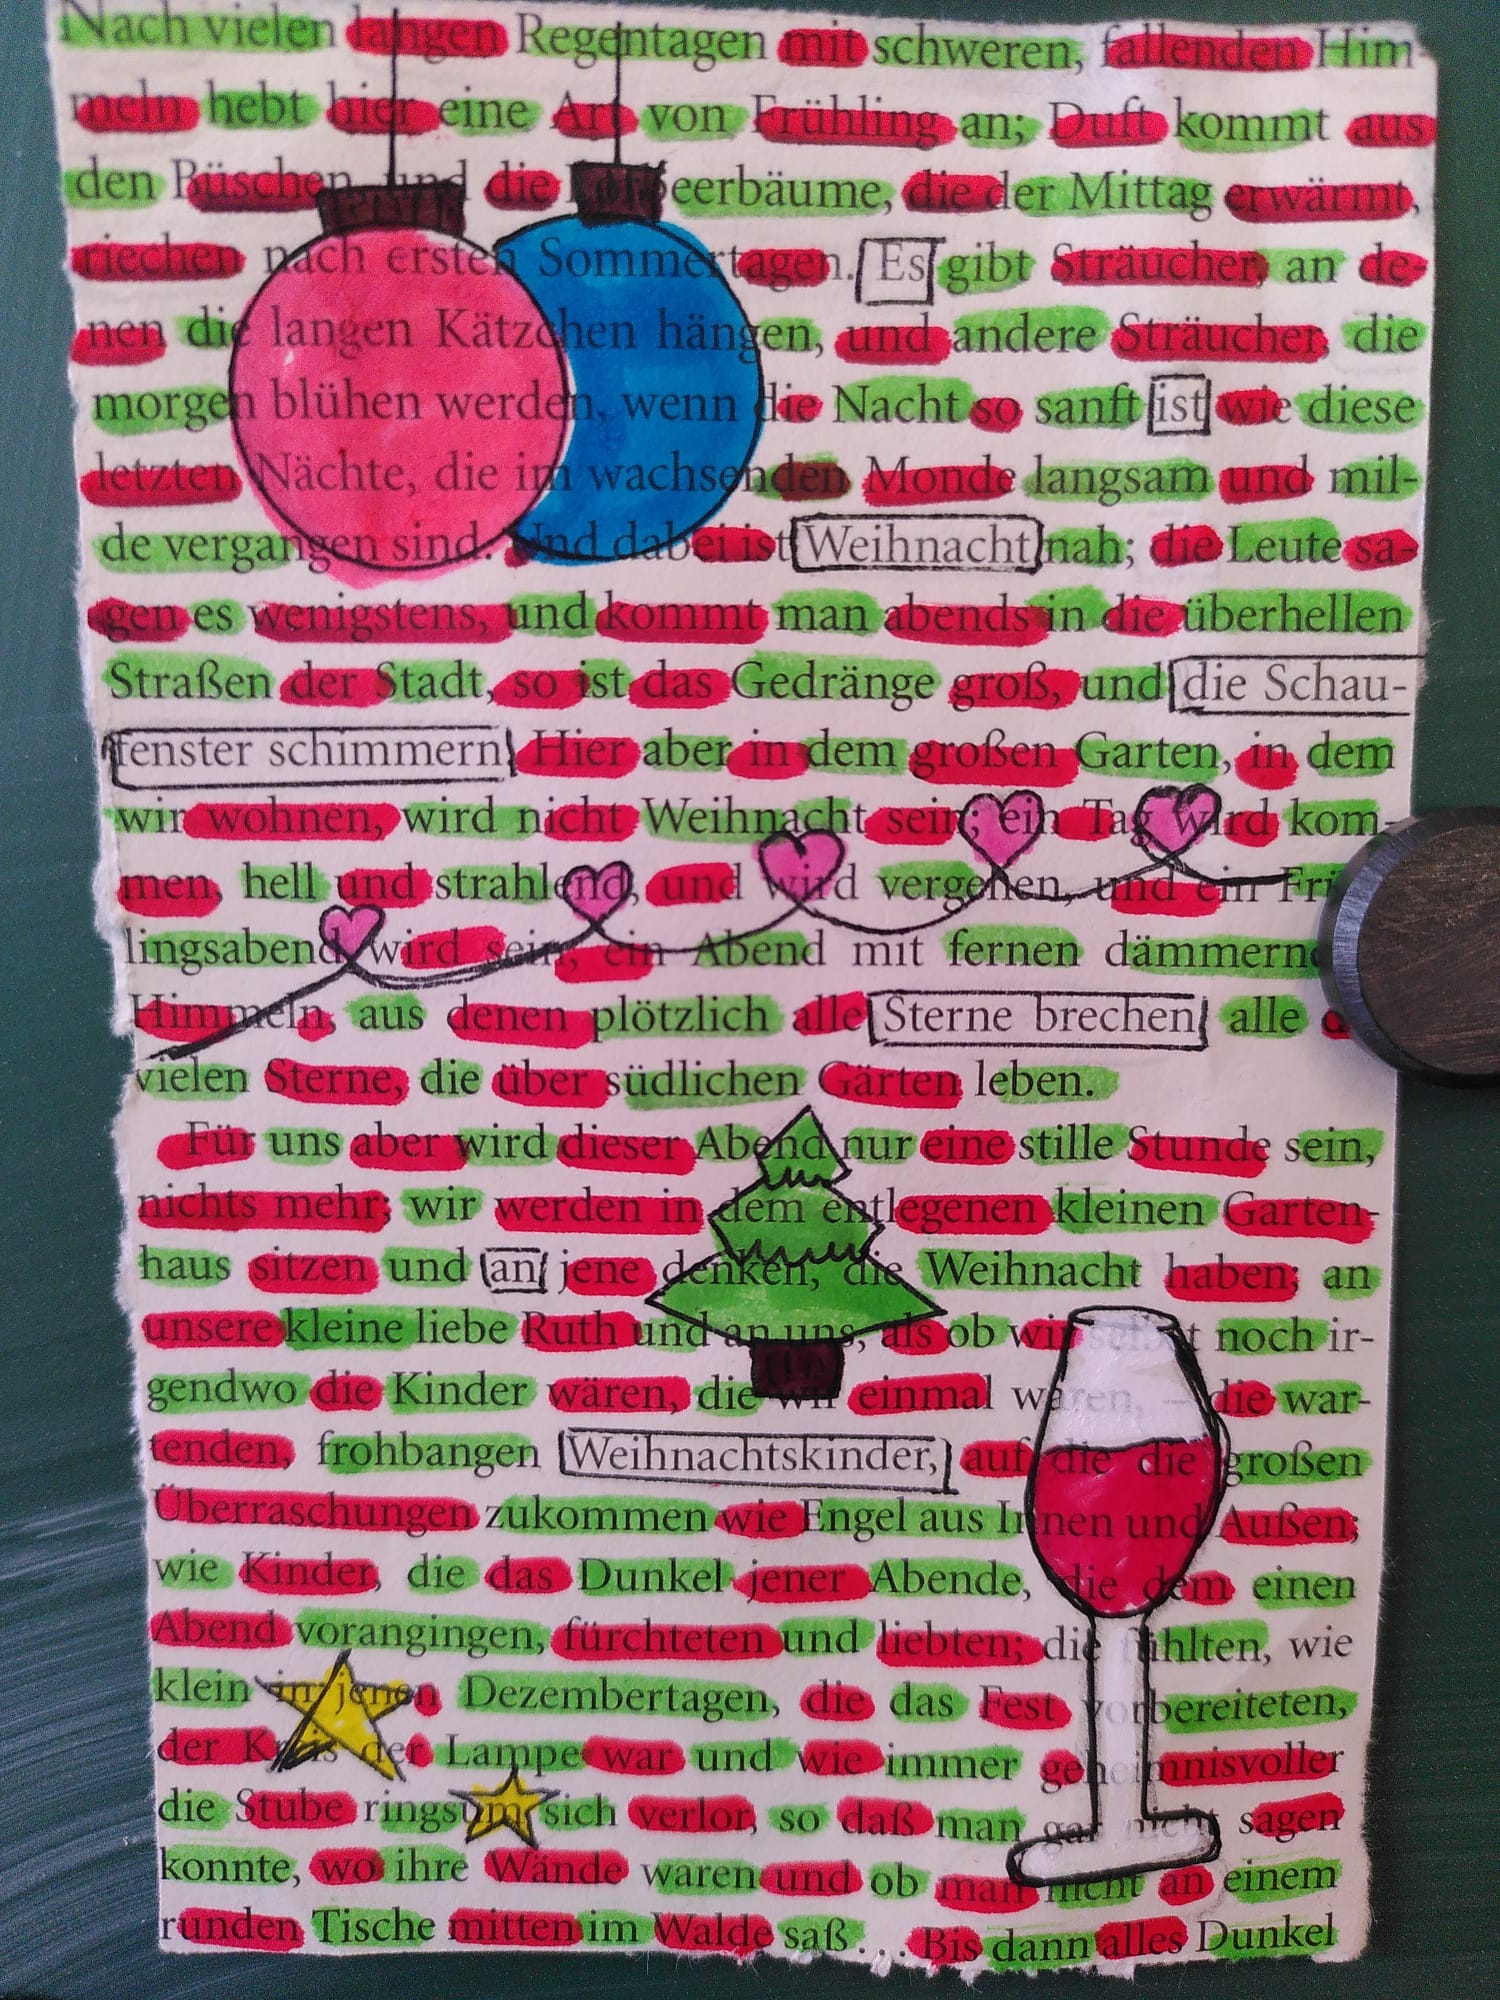 Nach vielen langen Regentagen mit schweren, fallenden Him-
meln hebt hier eine Art von Frühling an; Duft kommt aus
den Büschen und die Lorbeerbäume, die der Mittag erwärmt,
riechen nach ersten Sommertagen. Es gibt Sträucher, an de-
nen die langen Kätzchen hängen, und andere Sträucher, die
morgen blühen werden, wenn die Nacht so sanft ist wie diese
letzten Nächte, die im wachsenden Monde langsam und mil-
de vergangen sind. Und dabei ist Weihnacht nah; die Leute sa-
gen es wenigstens, und kommt man abends in die überhellen
Straßen der Stadt, so ist das Gedränge groß, und die Schau-
fenster schimmern. Hier aber in dem großen Garten, in dem
wir wohnen, wird nicht Weihnacht sein; ein Tag wird kom-
men, hell und strahlend, und wird vergehen, und ein Frü
lingsabend wird sein, ein Abend mit fernen dämmern
Himmeln, aus denen plötzlich alle Sterne brechen alle
vielen Sterne, die über südlichen Gärten leben.
Für uns aber wird dieser Abend nur eine stille Stunde sein,
nichts mehr; wir werden in dem entlegenen kleinen Garten-
haus sitzen und an jene denken, die Weihnacht haben; an
unsere kleine liebe Ruth und an uns, als ob wir selbst noch ir-
gendwo die Kinder wären, die wir einmal waren, – die war-
tenden, frohbangen Weihnachtskinder, auf die die großen
Überraschungen zukommen wie Engel aus Innen und Außen;
wie Kinder, die das Dunkel jener Abende, die dem einen
Abend vorangingen, fürchteten und liebten; die fühlten, wie
klein in jenen Dezembertagen, die das Fest vorbereiteten,
der Kreis der Lampe war und wie immer geheimnisvoller
die Stube ringsum sich verlor, so daß man gar nicht sagen
konnte, wo ihre Wände waren und ob man nicht an einem
runden Tische mitten im Walde saß... Bis dann alles Dunkel